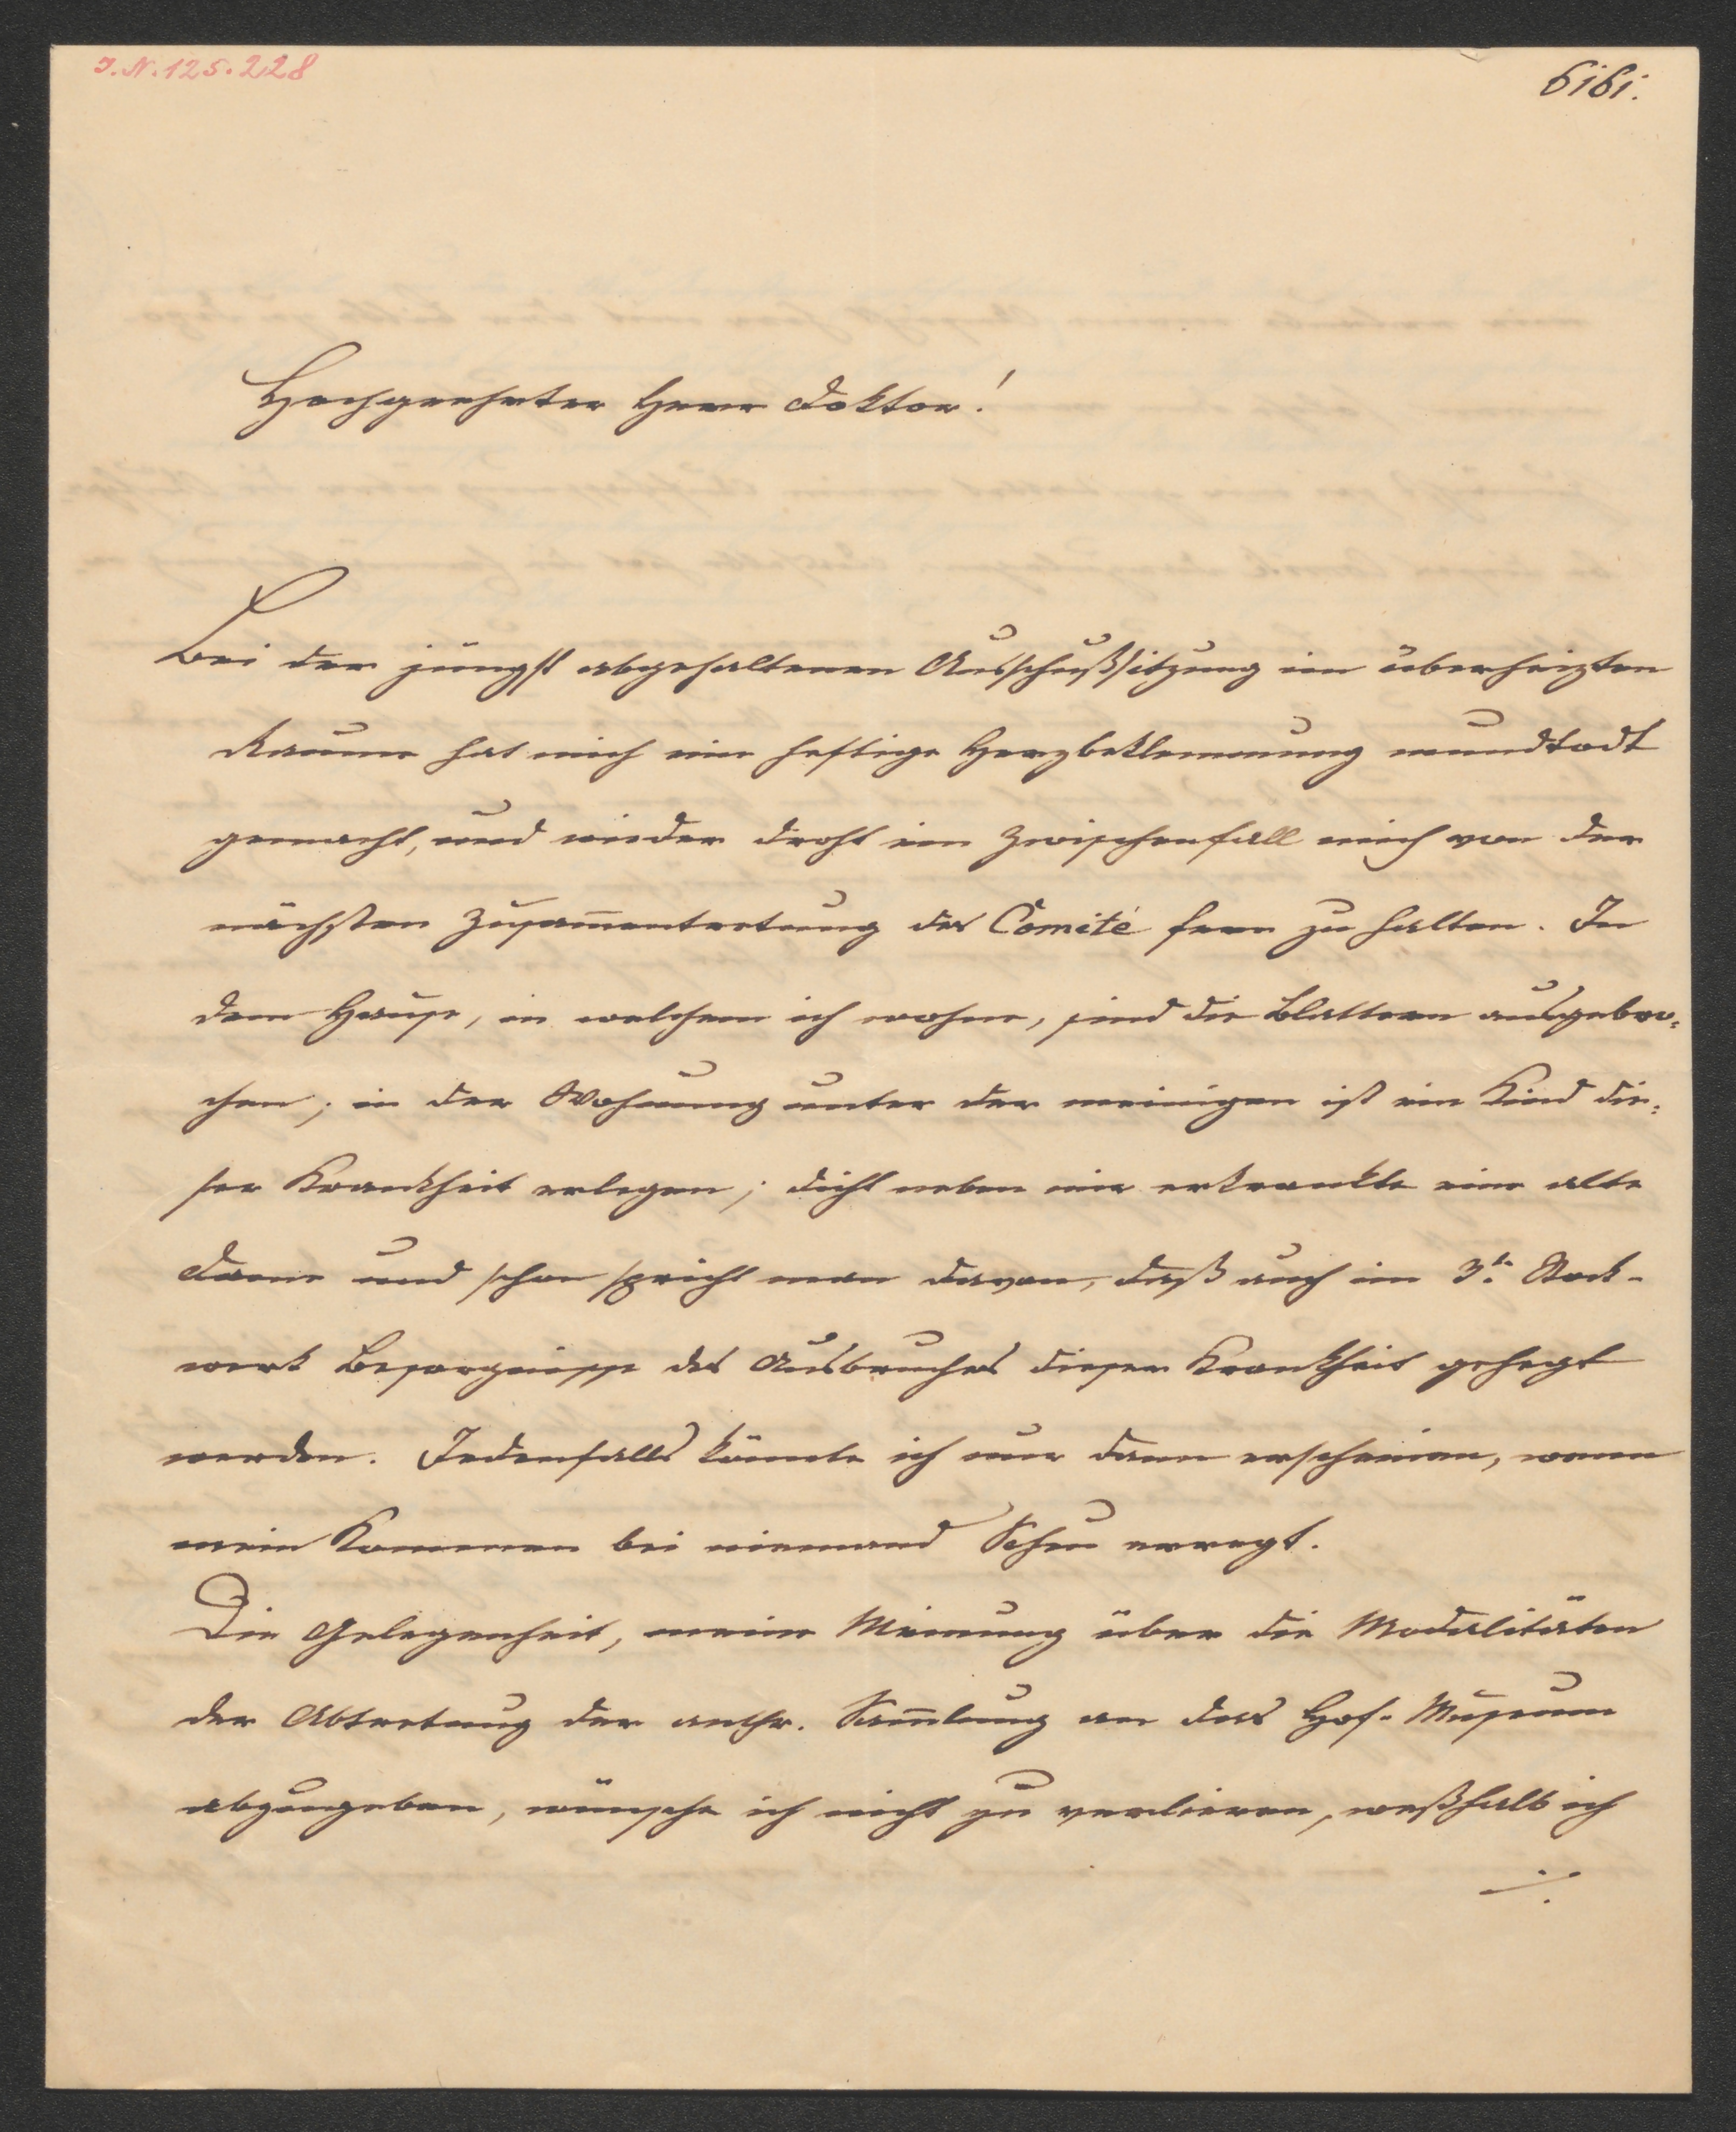 I.N. 125.228
6161.
Hochgeehrter Herr Doktor!
Bei der jüngst abgehaltenen Ausschußsitzung im überheizten
Raume hat mich eine heftige Herzbeklemmung mundtodt
gemacht, und wieder droht ein Zwischenfall mich von der
nächsten Zusam̄entretung des Comité fern zu halten. In
dem Hause, in welchem ich wohne, sind die Blattern ausgebro-
chen; in der Wohnung unter der meinigen ist ein Kind die-
ser Krankheit erlegen; dicht neben mir erkrankte eine alte
Dame und schon spricht man davon, daß auch im 3t. Stock-
werk Besorgnisse des Ausbruches dieser Krankheit gehegt
werden. Jedenfalls könnte ich nur dann erscheinen, wenn
mein Kommen bei niemand Scheu erregt.
Die Gelegenheit, meine Meinung über die Modalitäten
der Abtretung der anthr. Sam̄lung an das Hof-Museum
abzugeben, wünsche ich nicht zu verlieren, weßhalb ich
./.